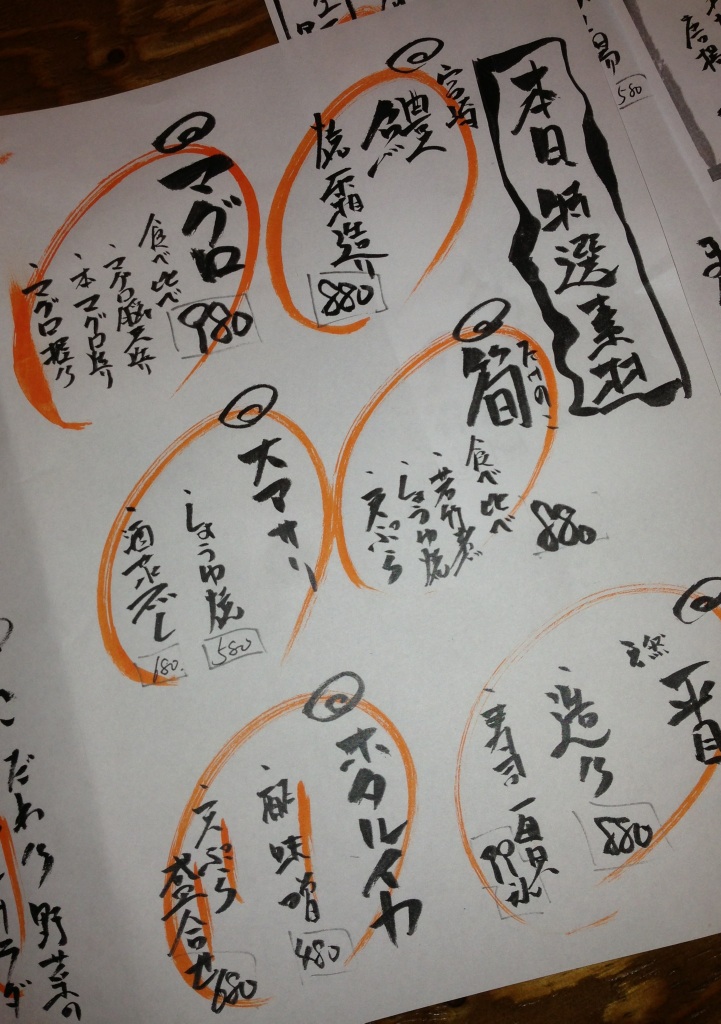 本日特選素材
宮崎
鱧
焼霜造り
880
マグロ
食べ比べ
980
マグロ握り
たけのこ
筍
食べ比べ
若竹煮
しょうゆ焼
天ぷら
880
大アサリ
しょうゆ焼
580
酒蒸し
天然
平目
造り
880
寿司
ホタルイカ
酢味噌
480
天ぷら
盛合せ
680
こだわり野菜の
580